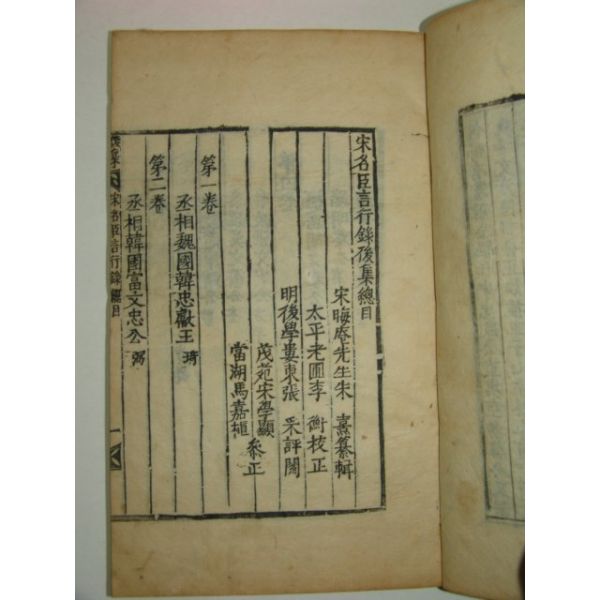 宋名臣言行錄後集總目
宋晦庵先生朱 熹纂輯
太平老圃李 衡校正
明後學婁東張 采評閱
茂苑宋學顯
當湖馬嘉植
參正
第一卷
丞相魏國韓忠獻王 琦
第二卷
丞相韓國富文忠公 弼
宋名臣言行錄 總目
一